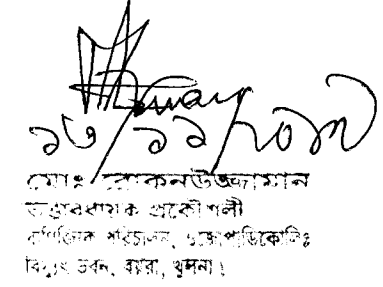 ১৩/১১/২০১৭
মোঃ রোকনউজ্জামান
তত্ত্বাবধায়ক প্রকৌশলী
বাণিজ্যিক পরিচালন, ওজোপাডিকোলিঃ
বিদ্যুৎ ভবন, বয়রা, খুলনা।